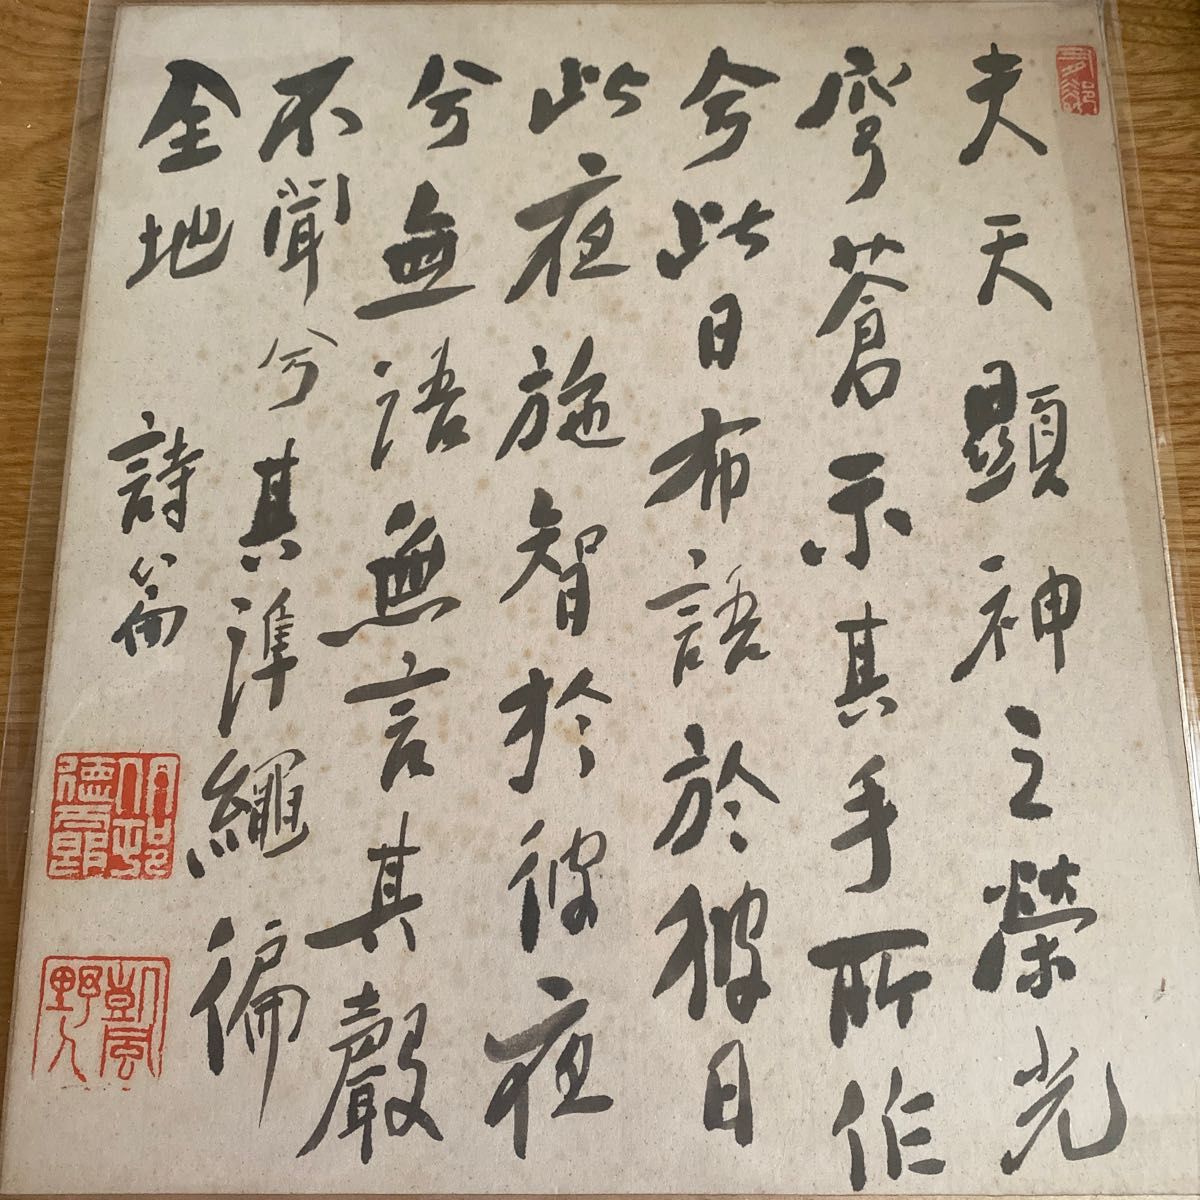 夫天顯神之榮光
穹蒼示其手所作
兮此日布語於彼日
此夜施智於彼夜
兮無語無言其聲
不聞兮其準繩徧
全地 詩篇
凱風野人